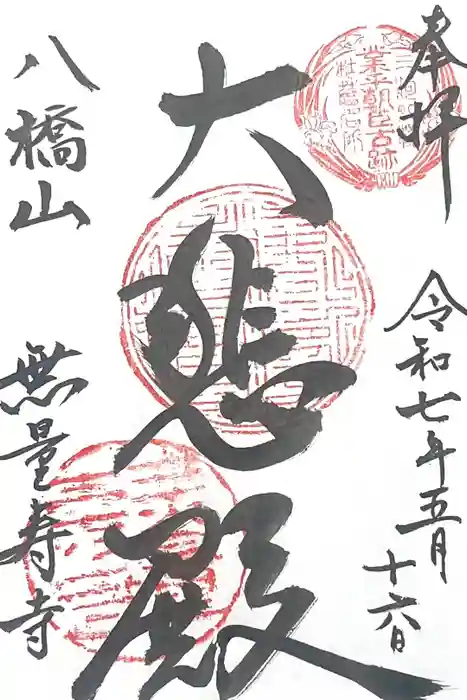 奉拝
令和七年五月十六日
大悲殿
八橋山
無量寿寺
業平朝臣古跡